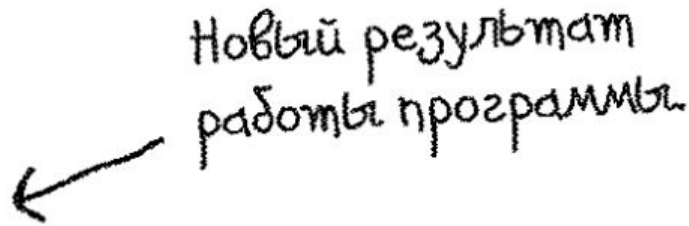 Новый результат
работы программы.